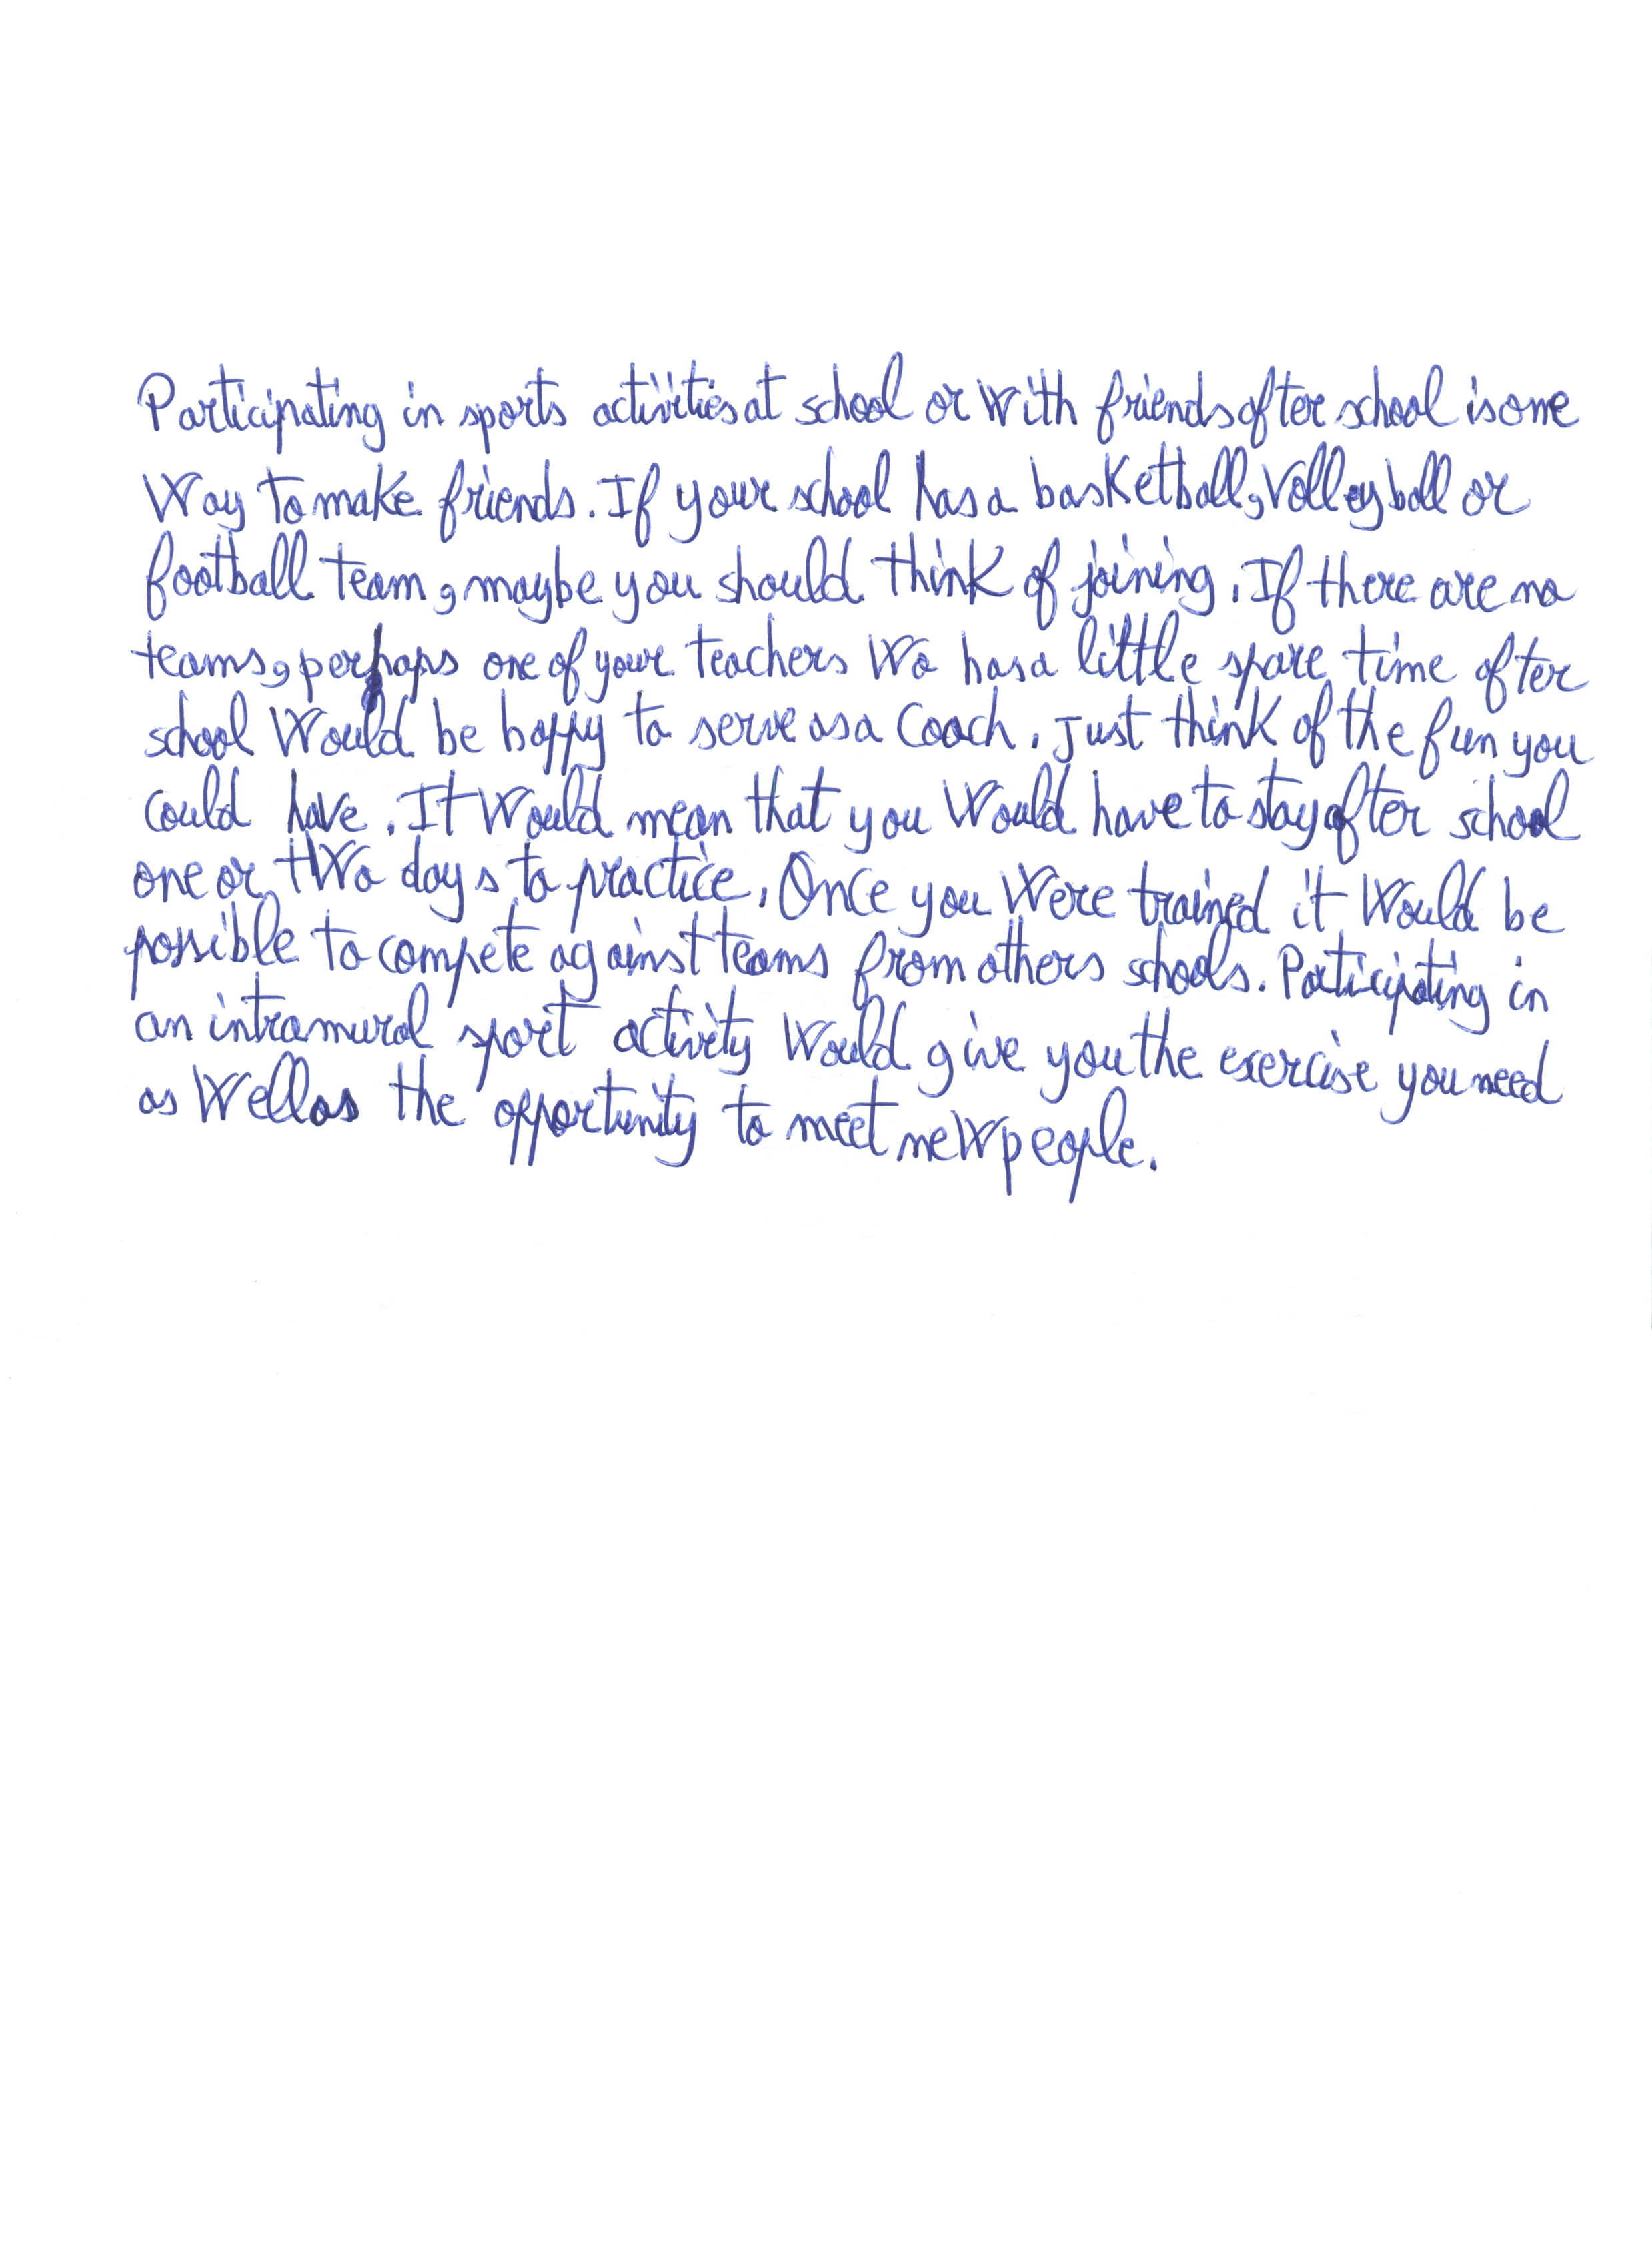 Participating in sports activities at school or with friends after school is one
way to make friends. If your school has a basketball, volleyball or
football team, maybe you should think of joining. If there are no
teams, perhaps one of your teachers wo has a little spare time after
school would be happy to serve as a coach. Just think of the fun you
could have. It would mean that you would have to stay after school
one or two days to practice. Once you were trained it would be
possible to compete against teams from others schools. Participating in
an intramural sport activity would give you the exercise you need
as well as the opportunity to meet new people.